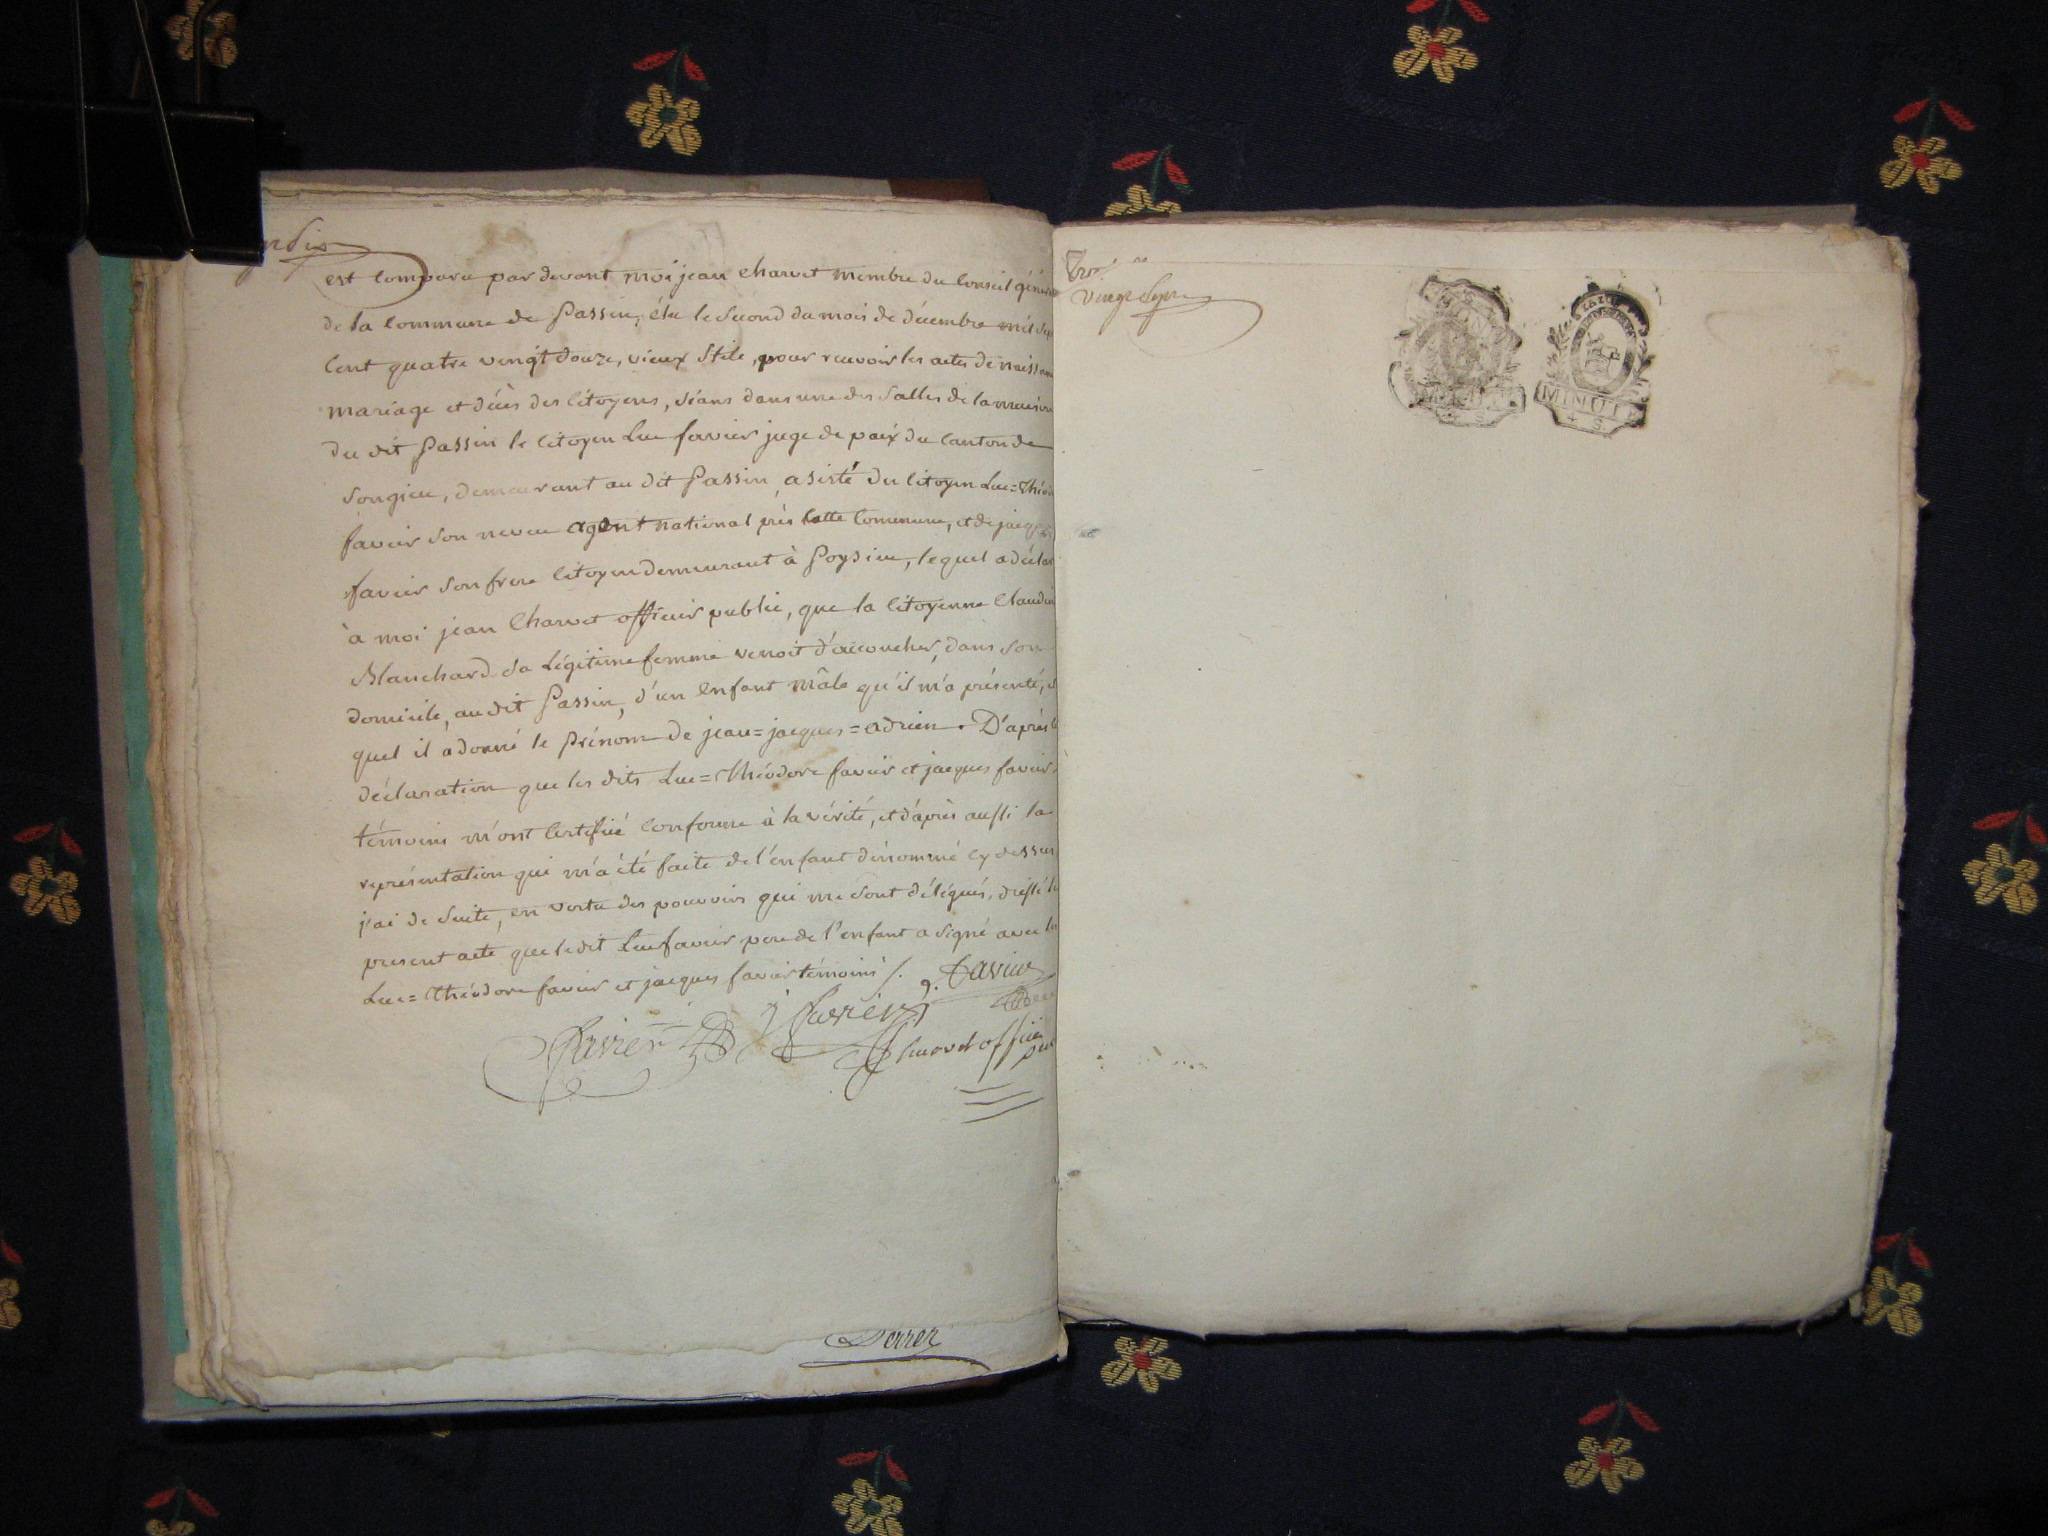 est Comparu par devant moi jean Charvet membre du Conseil géné
de la Commune de Passin, élu le second du mois de décembre mil sep
Cent quatre vingt douze, vieux stile, pour recevoir les actes de naissan
mariage et décès des Citoyens, séans dans une des salles de la maison
du dit Passin le Citoyen Luc favier juge de paix du Canton de
Songieu, demeurant au dit Passin, asisté du Citoyen Luc=Théod
favier son neveu agent national près Cette Commune, et de jacq
favier son frere Citoyen demeurant à Poysieu, lequel a déclar
à moi jean Charvet officier public, que la Citoyenne Claudi
Blanchard sa Légitime femme venoit d'accoucher, dans son
domicile, au dit Passin, d'un enfant mâle qu'il m'a présenté,
quel il a donné le prénom de jean=jacques=adrien. D'après
déclaration que les dits Luc=Théodore favier et jacques favier
témoins m'ont Certifié Conforme à la vérité, et d'après aussi la
représentation qui m'a été faite de l'enfant dénommé cy dessus
j'ai de suite, en vertu des pouvoirs qui me sont délégués, dressé le
present acte que le dit Luc favier pere de l'enfant a signé avec les
Luc=Théodore favier et jacques favier témoins /.
Favier
favier j favier
Charvet officier
pub
Vingt Sept
MINUTE
4 S